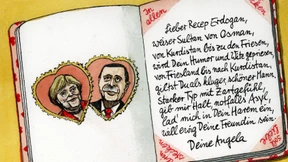 In
allen
Ecken
Lieber Recep Erdogan,
weiser Sultan von Osman,
von Kurdistan bis zu den Friesen,
wird Dein Humor und Witz gepriesen,
von Friesland bis nach Kurdistan,
giltst Du als kluger schöner Mann,
Starker Typ mit Zartgefühl,
gib mir Halt, notfalls Asyl,
lad' mich in Dein Harem ein,
will ewig Deine Freundin sein.
Deine Angela
soll